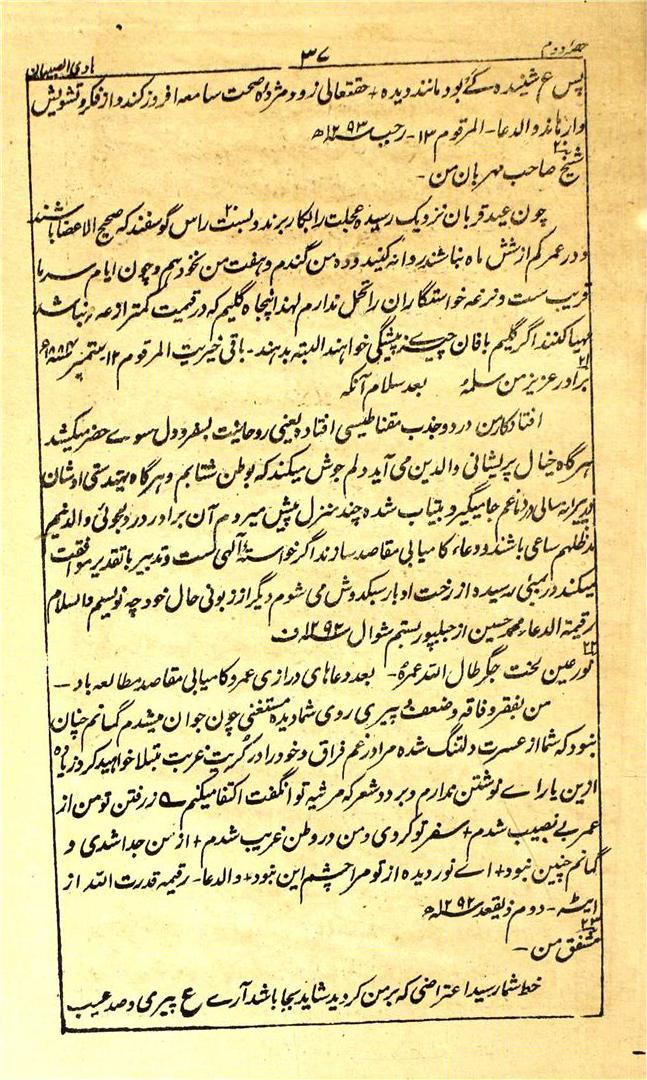 حصہ دوم ۳۷ ہادی الصبیان
پس ع شنیدہ کے بود مانند دیدہ + حقتعالی زود مژدۂ صحت سامعہ افروز کند و از فکر و تشویش
وارہاند والدعا - المرقوم ۱۳ - رجب سنہ ۱۲۹۳ھ
۲۰
شیخ صاحب مہربان من -
چون عید قربان نزدیک رسیدہ عجلت را بکار برند و بست راس گوسفند کہ صحیح الاعضا باشند
و در عمر کم از شش ماہ نباشند روانہ کنید و دہ من گندم و ہفت من نخود ہم و چون ایام سرما
قریب ست و نرغہ خواستگاران را تحمل ندارم لہذا پنجاہ گلیم کہ در قیمت کمتر از عہ نباشد
مہیا کنند اگر گلیم بافان چیزے پیشگی خواہند البتہ بدہند - باقی خیریت المرقوم ۱۲ - ستمبر سنہ ۱۸۸۴ع
۲۱
برادر عزیز من سلمہ بعد سلام آنکہ
افتاد کار من در دو جذب مقناطیسی افتادہ یعنی روحانیت بسفر و دل سوے حضر میکشد
ہرگاہ خیال پریشانی والدین می آید دلم جوش میکند کہ بوطن شتابم و ہرگاہ تہیدستی اوشان
و پیرانہ سالی در دماغم جا میگیرد بیتاب شدہ چند منزل پیش میروم آن برادر در دلجوئی والدینم
مدظلہم ساعی باشند و دعاء کامیابی مقاصد سازند اگر خواستۂ الٰہی ست و تدبیر با تقدیر موافقت
میکند در بمبئی رسیدہ از رخت ادبار سبکدوش می شوم دیگر از زبونی حال خود چہ نویسم والسلام
رقیمۃ الدعاء محمد حسین از جبلپور بستم شوال سنہ ۱۲۹۲ ف
۲۲
نور عین لخت جگر طال اللہ عمرہ - بعد دعاہای درازی عمر و کامیابی مقاصد مطالعہ باد -
من بفقر و فاقہ و ضعف پیری روی شما دیدہ مستغنی چون جوان میشدم گمانم چنان
نبود کہ شما از عسرت دلتنگ شدہ مرا در غم فراق و خود را در کربت غربت مبتلا خواہید کرد زیادہ
ازین یاراے نوشتن ندارم و بر دو شعر کہ مرثیہ توانگفت اکتفا میکنم ے ز رفتن تو من از
عمر بے نصیب شدم + سفر تو کردی و من در وطن غریب شدم + از من جدا شدی و
گمانم چنین نبود + اے نور دیدہ از تو مرا چشم این نبود + والدعا - رقیمہ قدرت اللہ از
ایٹہ - دوم ذیقعد سنہ ۱۲۹۲ھ
۲۳
مشفق من -
خط شما رسید اعتراضی کہ بر من کردید شاید بجا باشد آرے ع پیری و صد عیب